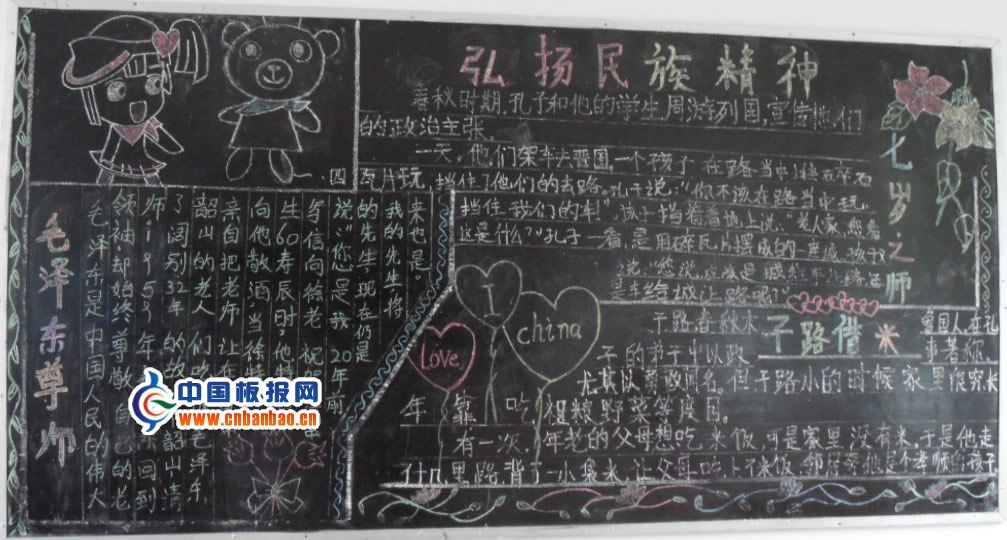 弘扬民族精神
春秋时期,孔子和他的学生周游列国,宣传他们
的政治主张。
一天,他们架车去晋国,一个孩子在路当中堆碎石
瓦片玩,挡住了他们的去路。孔子说:"你不该在路当中玩,
挡住我们的车!"孩子指着地上说:"老人家,您看
这是什么?"孔子一看,是用碎石瓦片摆成的一座城。孩子又
说:您说,应该是城给车让路还
是车给城让路呢?
七岁之师
I
Love
china
子路借米
子路春秋末
鲁国人,在孔
子的弟子中以政
事著称。
尤其以勇敢闻名。但子路小的时候家里很穷,长
年靠吃粗粮野菜等度日。
有一次,年老的父母想吃米饭,可是家里没有米,于是他走
了十几里路,背了一小袋米,让父母吃上了米饭,邻居夸他是个孝顺的孩子
毛泽东尊师
毛泽东是中国人民的伟大
领袖却始终尊敬自己的老
师1953年
回到
了阔别32年的故
韶山请
韶山的老人们吃
毛泽东
亲自把老师让在
向他敬酒当徐特
生60寿辰时,他特
写信向徐老祝贺
说:"您是我20年前
的先生,现在仍是
我的先生,将
来也是。
中国板报网
www.cnbanbao.cn